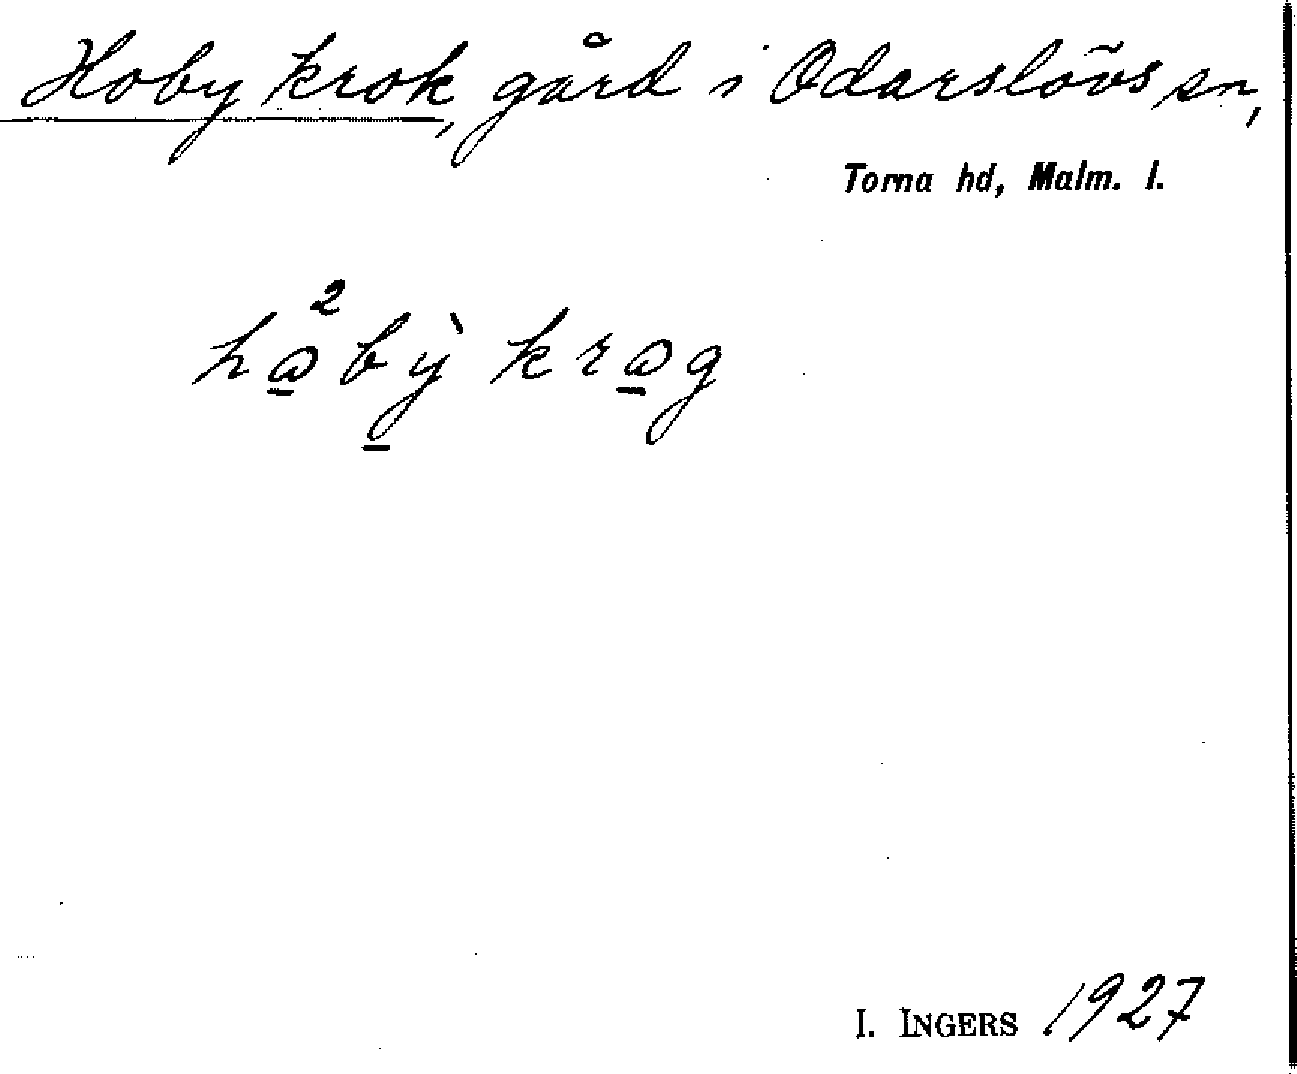 Hoby krok, gård i Odarslövs sn,
Torna hd, Malm. l.
ha²bỳ krag
I. INGERS 1927